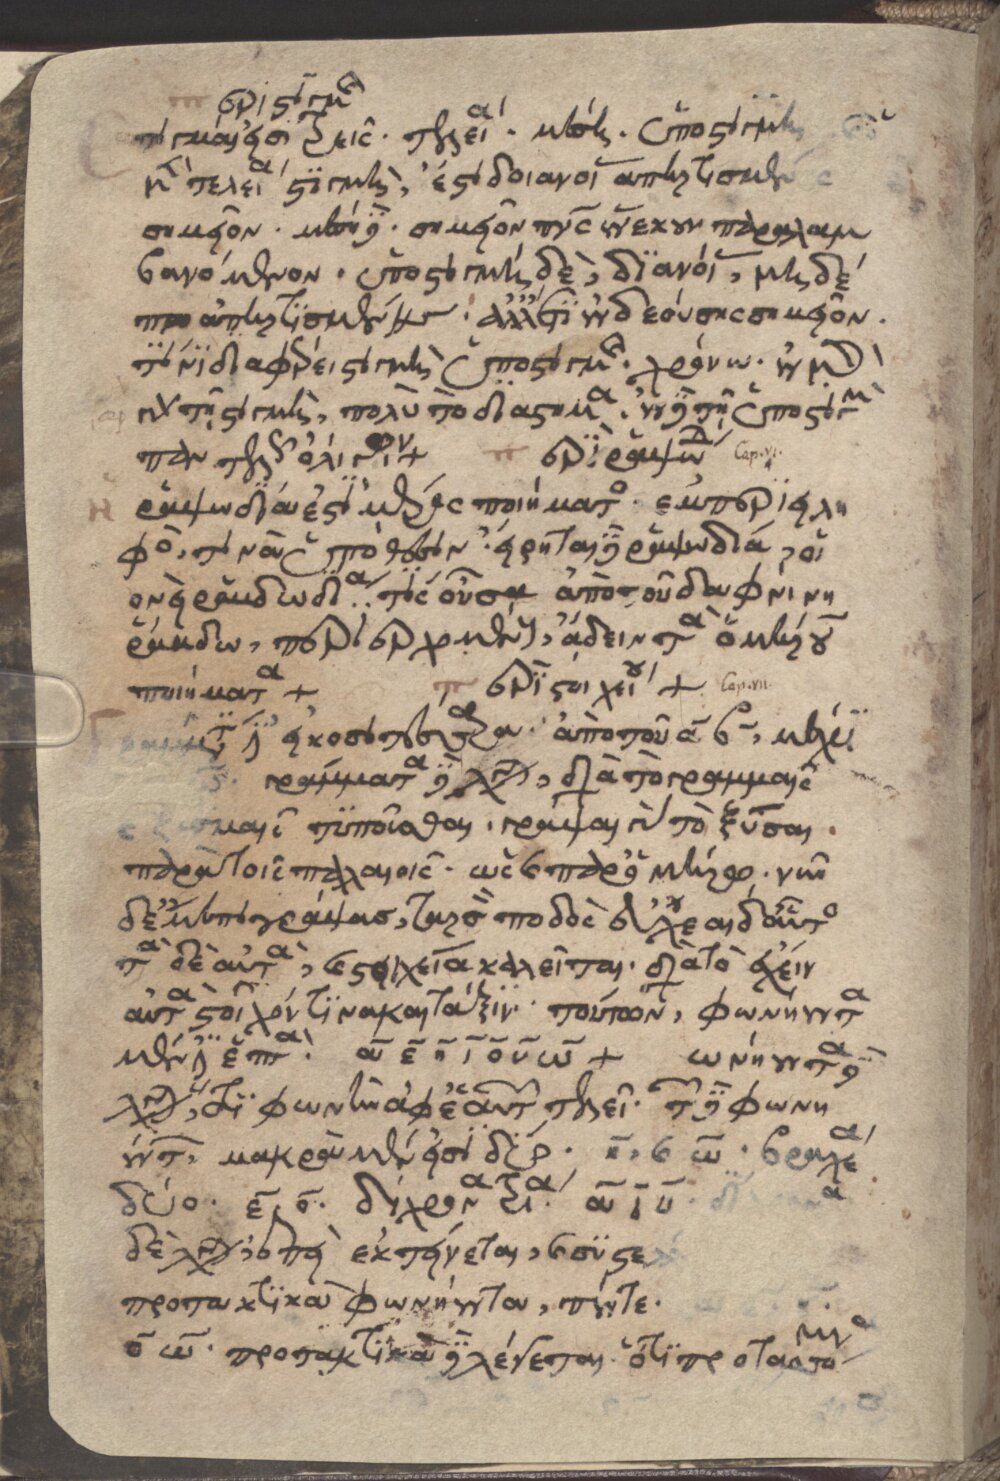 π περὶ στιγμῆς
στιγμαί εἰσι τρεῖς· τελεία· μέση· ὑποστιγμή·
καὶ ἡ μὲν τελεία στιγμὴ, ἐστὶ διανοίας ἀπηρτισμένης
σημεῖον· μέση δὲ· σημεῖον πνεύματος ἕνεκεν παραλαμ
βανόμενον· ὑποστιγμὴ δὲ, διανοίας, μηδέ
πω ἀπηρτισμένης· ἀλλ' ἔτι ἐνδεούσης σημεῖον·
τίνι διαφέρει στιγμὴ ὑποστιγμῆς· χρόνῳ· ἐν μὲν
γὰρ τῇ στιγμῇ, πολὺ τὸ διάστημα· ἐν δὲ τῇ ὑποστιγμῇ
παντελῶς ὀλίγον + π περὶ ῥαψωδίας Cap. vi.
ῥαψωδία ἐστὶ μέρος ποιήματος· ἐμπεριειλη
φὸς, τινὰ ὑπόθεσιν· εἴρηται δὲ ῥαψωδία, οἱ
ονεὶ ῥαβδωδία τίς οὖσα ἀπὸ τοῦ δαφνίνῃ
ῥάβδω, περιερχομένους, ἄδειν τὰ ὁμήρου
ποιήματα + π περὶ στοιχείου + Cap. vii.
Γράμματά εἰσιν εἰκοσιτέσσαρα· ἀπὸ τοῦ α̅ β̅, μέχρι
γράμματα δὲ λέγεται, διὰ τὸ γραμμαῖς
ξυσμαῖς τυποῦσθαι· γράψαι γὰρ τὸ ξῦσαι·
παρὰ τοῖς παλαιοῖς· ὡς καὶ παρ' ὁμήρῳ· νῦν
δέ μ' ἐπιγράψας, ταρσὸν ποδὸς εὔχεαι αὔτως
τὰ δὲ αὐτὰ, καὶ στοιχεῖα καλεῖται· διὰ τὸ ἔχειν
αὐτὰ στοῖχόν τινα καὶ τάξιν· τούτων, φωνήεντα
μέν εἰσιν ἑπτά· α̅ ε̅ η̅ ι̅ ο̅ υ̅ ω̅ + ωνήεντα δὲ
λέγεται, ὅτι φωνὴν ἀφ' ἑαυτῶν τελεῖ· τῶν δὲ φωνη
έντων, μακρὰ μέν εἰσι δύο· η̅, καὶ ω̅· βραχέα
δύο· ε̅, ο̅· δίχρονα τρία· α̅ ι̅ υ̅· δίχρονα
δὲ λέγεται, ἐπεὶ ἐκτείνεται, καὶ συστε
προτακτικὰ φωνήεντα, πέντε·
ο̅ ω̅· προτακτικὰ δὲ λέγεται· ὅτι προτασσόμενα